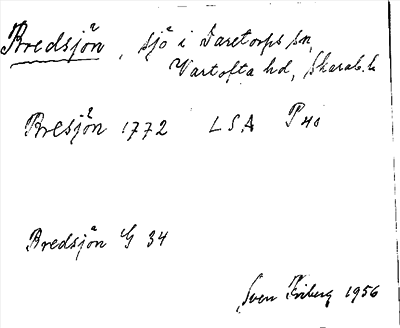 Bredsjön, sjö i Daretorps sn,
Vartofta hd, Skarab. l.
Bresjön 1772 LSA P 40
Bredsjön G 34
Sven Friberg 1956